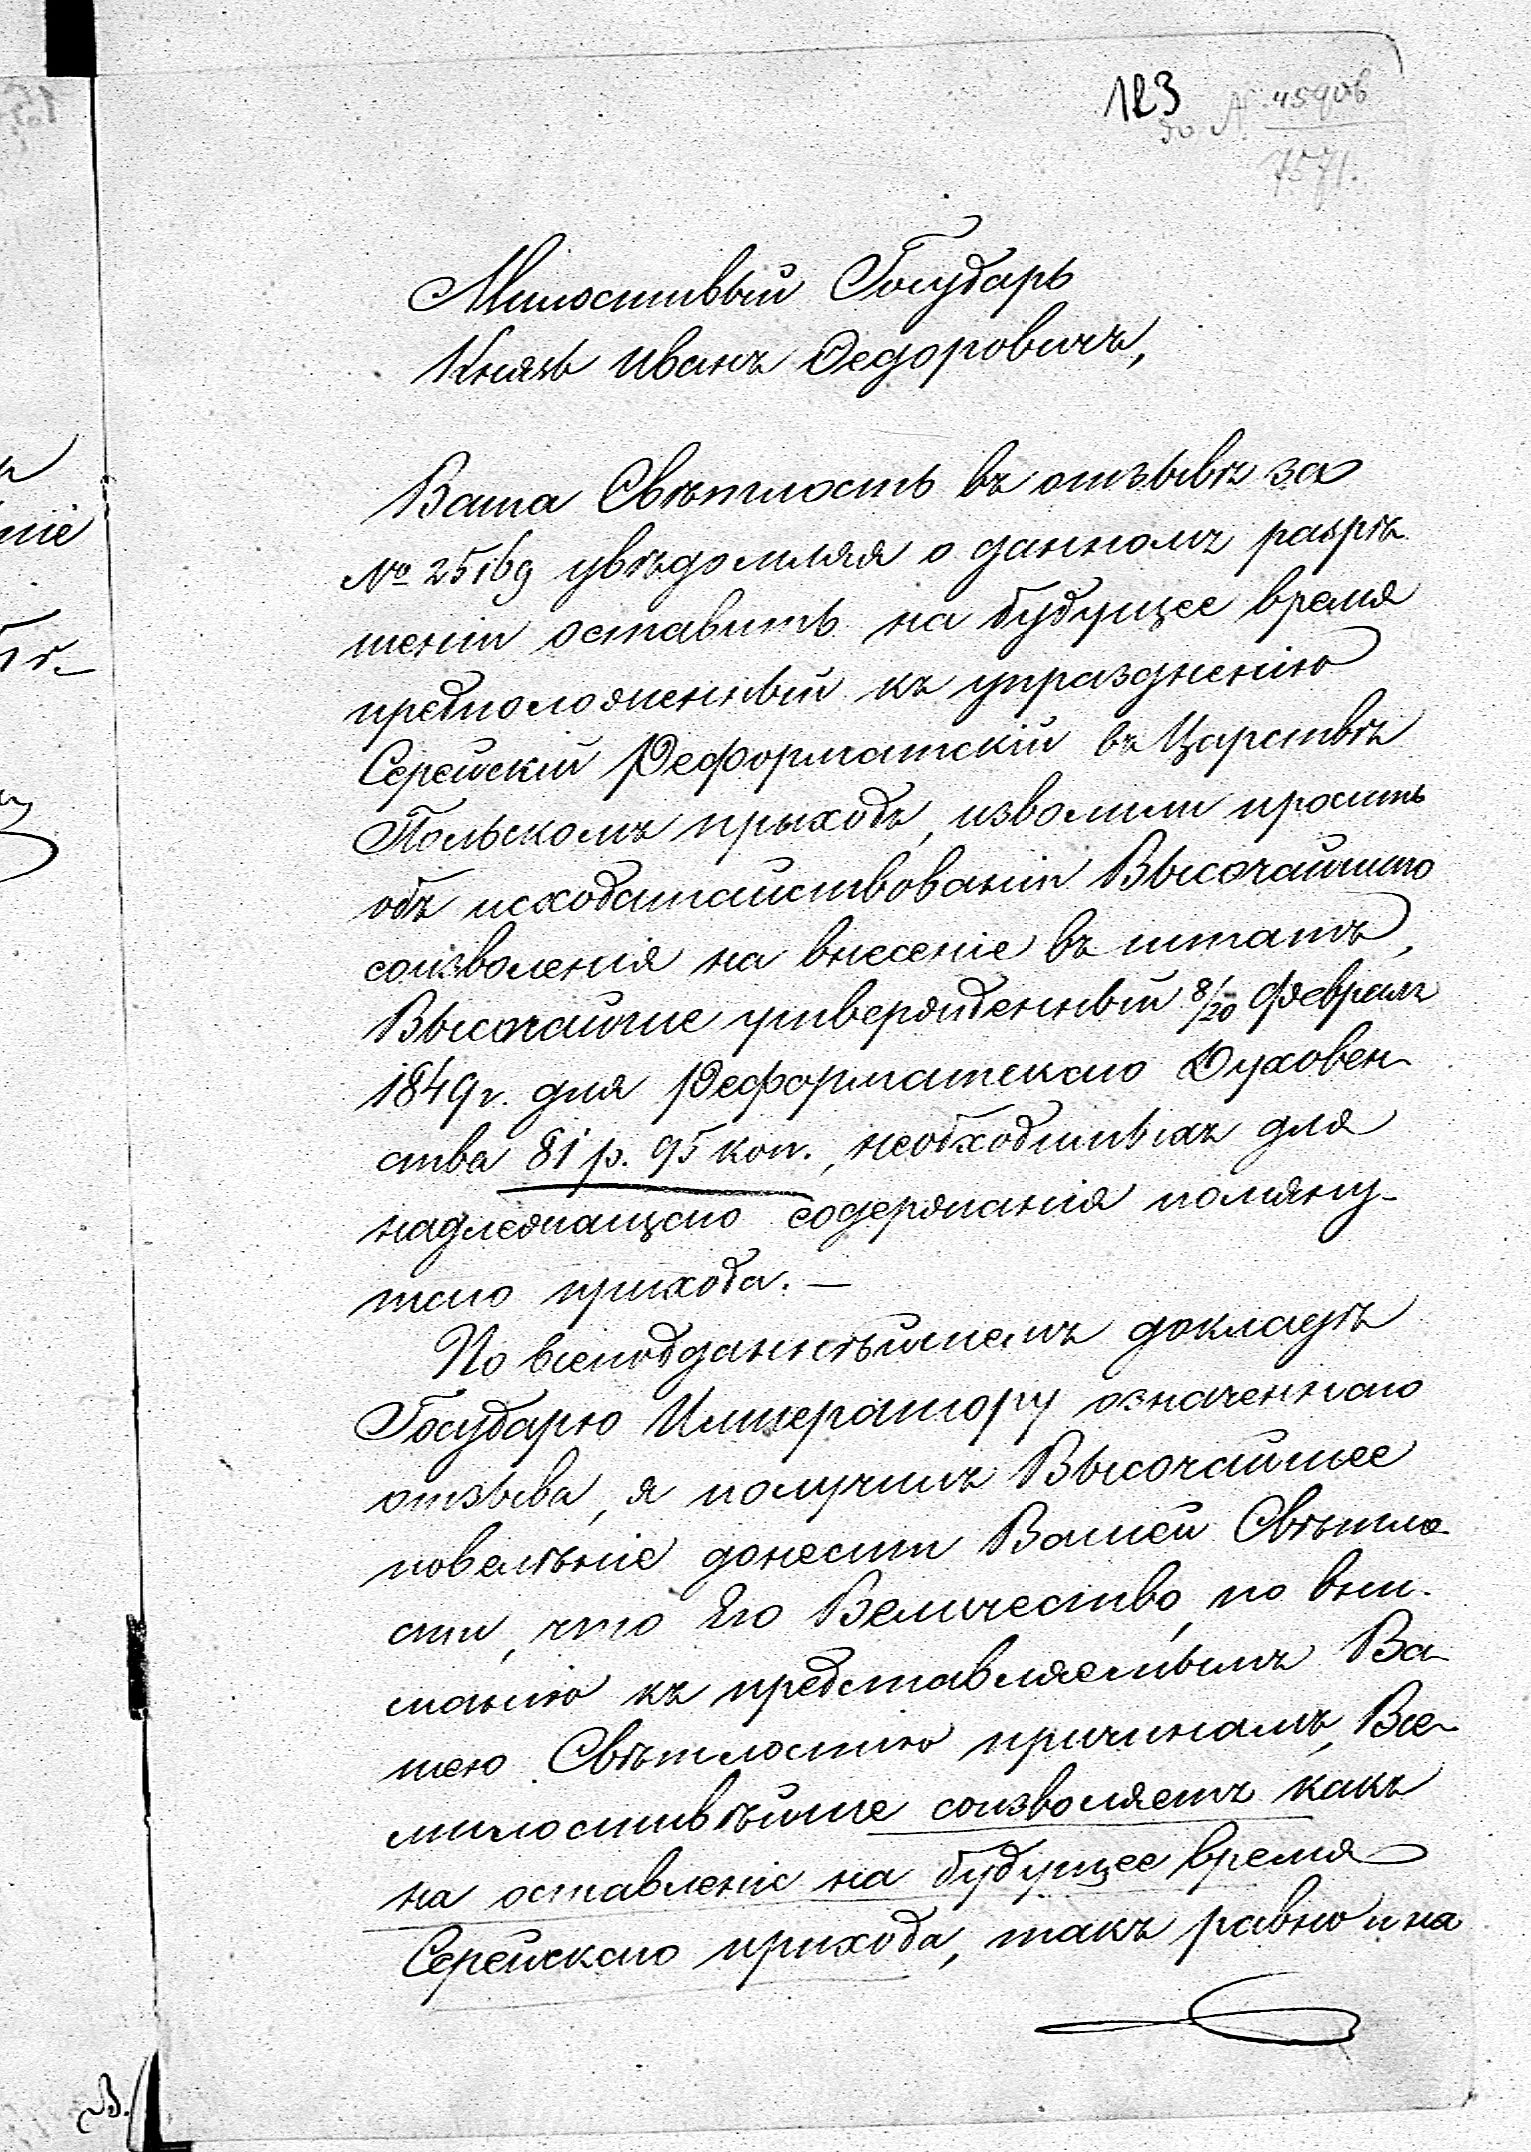 123
до № 45906
7571.
Милостивый Государь
Князь Иванъ Федоровичъ,
Ваша Свѣтлость въ отзывѣ за
№ 25169 увѣдомляя о данномъ разрѣ
шеніи оставить на будущее время
предположенный къ упраздненію
Серейскій Реформатскій въ Царствѣ
Польскомъ прыходъ, изволили просить
объ исходатайствованіи Высочайшаго
соизволенія на внесеніе въ штатъ,
Высочайше утвержденный 8/20 Февраля
1849 г. для Реформатскаго Духовен
ства 81 р. 95 коп., необходимыхъ для
надлежащаго содержанія помяну-
таго прихода. —
По всеподданнѣйшемъ докладѣ
Государю Императору означеннаго
отзыва, я получилъ Высочайшее
повелѣніе донести Вашей Свѣтло
сти, что Его Величество, по вни-
манію къ представляемымъ Ва-
шею Свѣтлостію причинамъ, Все-
милостивѣйше соизволяетъ какъ
на оставленіе на будущее время
Серейскаго прихода, такъ равно и на
В.